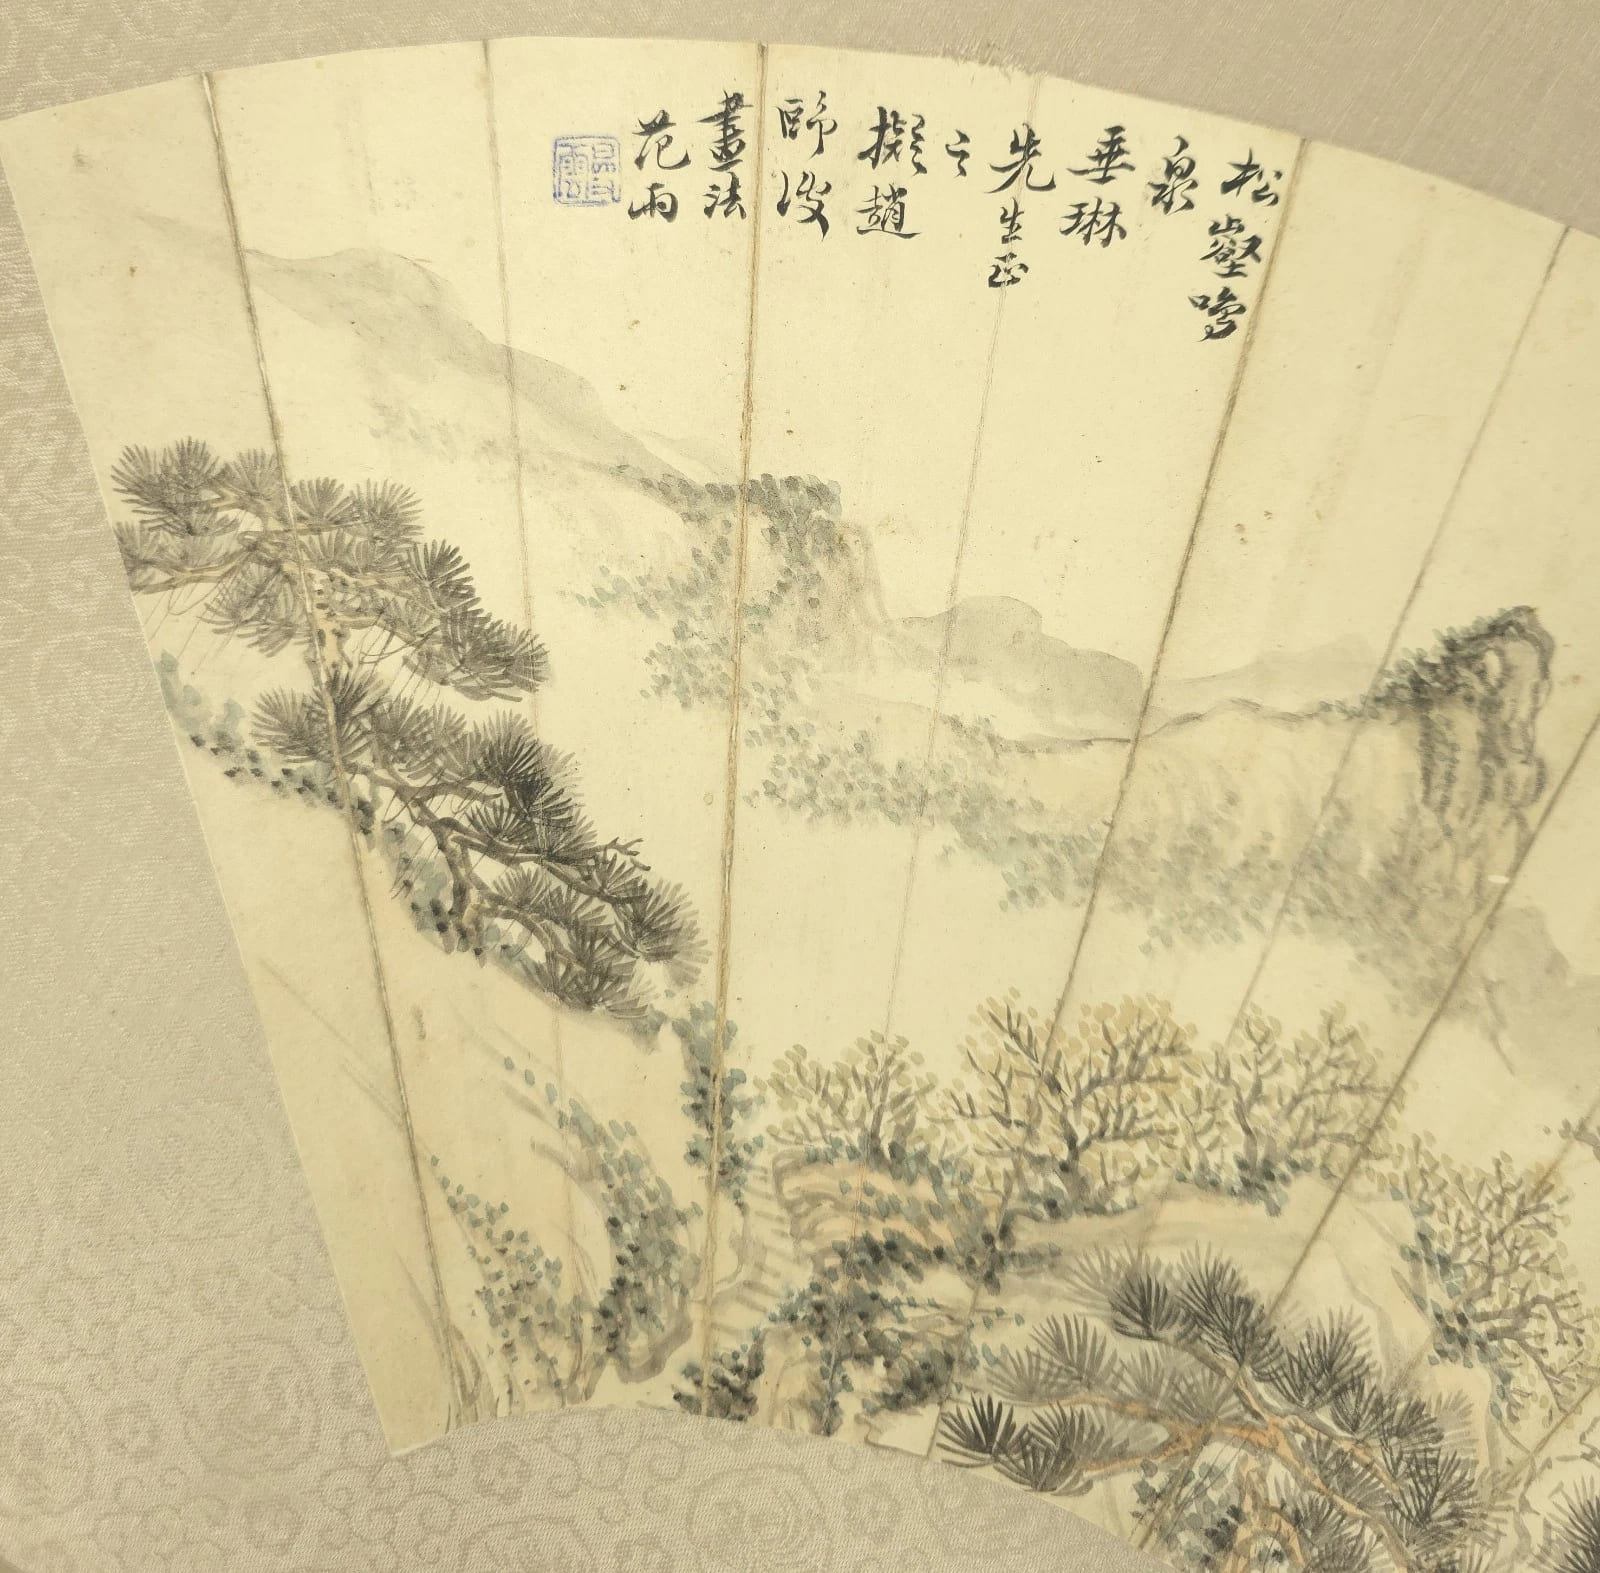 松壑鳴
泉
垂琳
先生正
之
擬趙
畫法
范雨